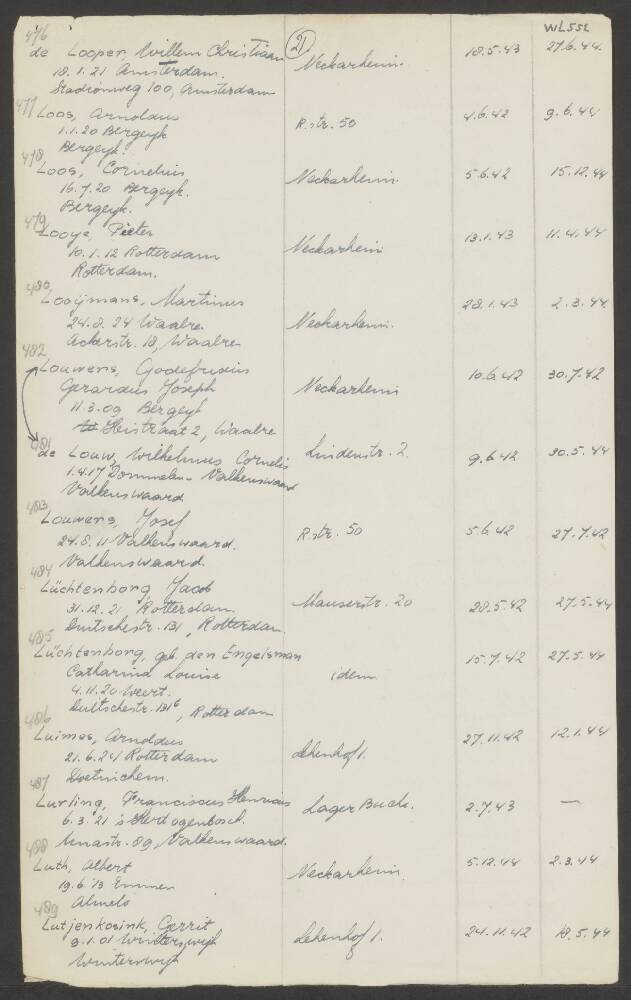 WL552
476 (21)
de Looper, Willem Christiaan Neckarheim. 18.5.43 27.6.44
18.1.21 Amsterdam.
Stadionweg 100, Amsterdam
477 Loos, Arnoldus R.str. 50 4.6.42 9.6.44
1.1.20 Bergeyk
Bergeyk.
478
Loos, Cornelius Neckarheim. 5.6.42 15.12.44
16.7.20 Bergeyk.
Bergeyk.
479
Looye, Pieter Neckarheim 13.1.43 11.4.44
10.1.12 Rotterdam
Rotterdam.
480
Looijmans, Martinus 28.1.43 2.3.44
24.8.24 Waalre. Neckarheim.
Ackerstr. 18, Waalre
482
Louwers, Godefridus 10.6.42 30.7.42
Gerardus Joseph Neckarheim
11.3.09 Bergeyk
Heistraat 2, Waalre
481
de Louw, Wilhelmus Cornelis Lindenstr. 2. 9.6.42 30.5.44
1.4.17 Dommelen - Valkenswaard
Valkenswaard
483
Louwers, Josef R.str. 50 5.6.42 27.7.42
24.8.11 Valkenswaard.
Valkenswaard.
484
Lüchtenborg Jacob Mauserstr. 20 28.5.42 27.5.44
31.12.21 Rotterdam.
Duitschestr. 131, Rotterdam
485
Lüchtenborg, geb. den Engelsman 15.7.42 27.5.44
Catharina Louise idem
4.11.20 Weert.
Duitschestr. 131b, Rotterdam
486
Luimes, Arnoldus 27.11.42 12.1.44
21.6.24 Rotterdam Lehenhof 1.
Doetinchem.
487
Lurling, Franciscus Henricus Lager Buch. 2.7.43 —
6.3.21 's Hertogenbosch.
488 Annastr. 89, Valkenswaard.
Luth, Albert Neckarheim 5.12.44 2.3.44
19.6.13 Emmen
Almelo
489
Lutjenkosink, Gerrit Lehenhof 1. 24.11.42 18.5.44
9.1.01 Winterswijk
Winterswijk